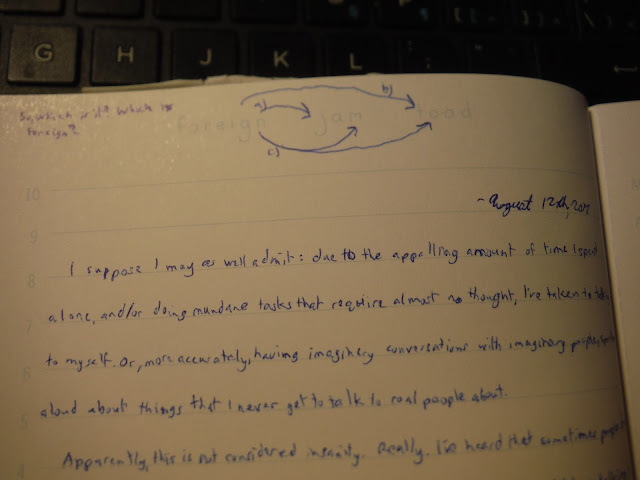 G H J K L
So, which is it? Which is
foreign?
foreign jam toad
a) b)
c)
10
~August 12th, 20
9
I suppose I may as well admit: due to the appalling amount of time I spend
8
alone, and/or doing mundane tasks that require almost no thought, I've taken to
7
to myself. Or, more accurately, having imaginery conversations with imaginary people,
6
aloud about things that I never get to talk to real people about.
5
Apparently, this is not considered insanity. Really. I've heard that sometimes
4